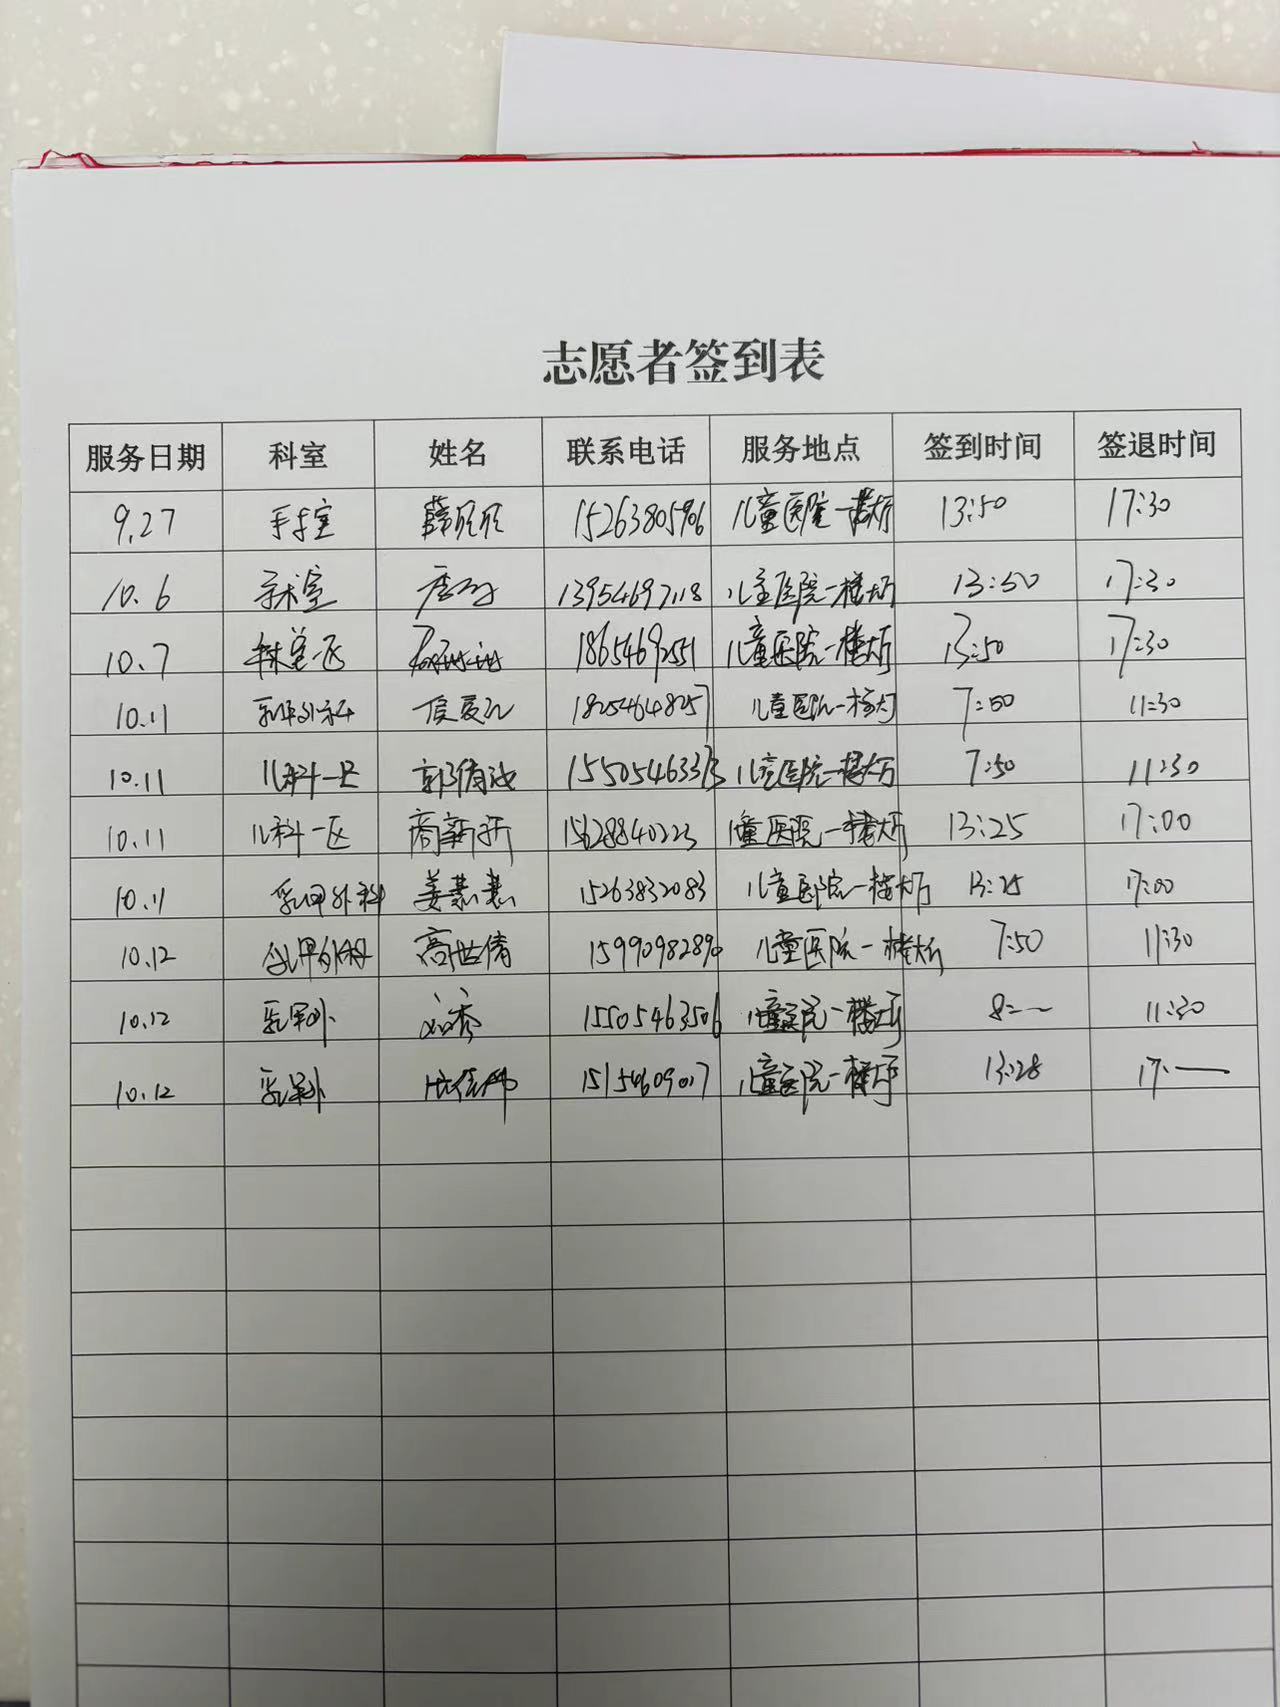 志愿者签到表
服务日期 科室 姓名 联系电话 服务地点 签到时间 签退时间
9.27 手术室 薛欣欣 15263805906 儿童医院一楼大厅 13:50 17:30
10.6 手术室 13954697118 儿童医院一楼大厅 13:50 17:30
10.7 18654692551 儿童医院一楼大厅 13:50 17:30
10.11 乳甲外科 信爱 18254648257 儿童医院一楼大厅 7:50 11:30
10.11 儿科一区 郭倩 15505463373 儿童医院一楼大厅 7:50 11:30
10.11 儿科一区 商新新 15628840223 儿童医院一楼大厅 13:25 17:00
10.11 乳甲外科 姜慧慧 15263832083 儿童医院一楼大厅 13:25 17:00
10.12 乳甲外科 高世倩 15990982890 儿童医院一楼大厅 7:50 11:30
10.12 乳甲外 15505463506 儿童医院一楼大厅 8:— 11:30
10.12 乳甲外 15154609017 儿童医院一楼大厅 13:28 17:—